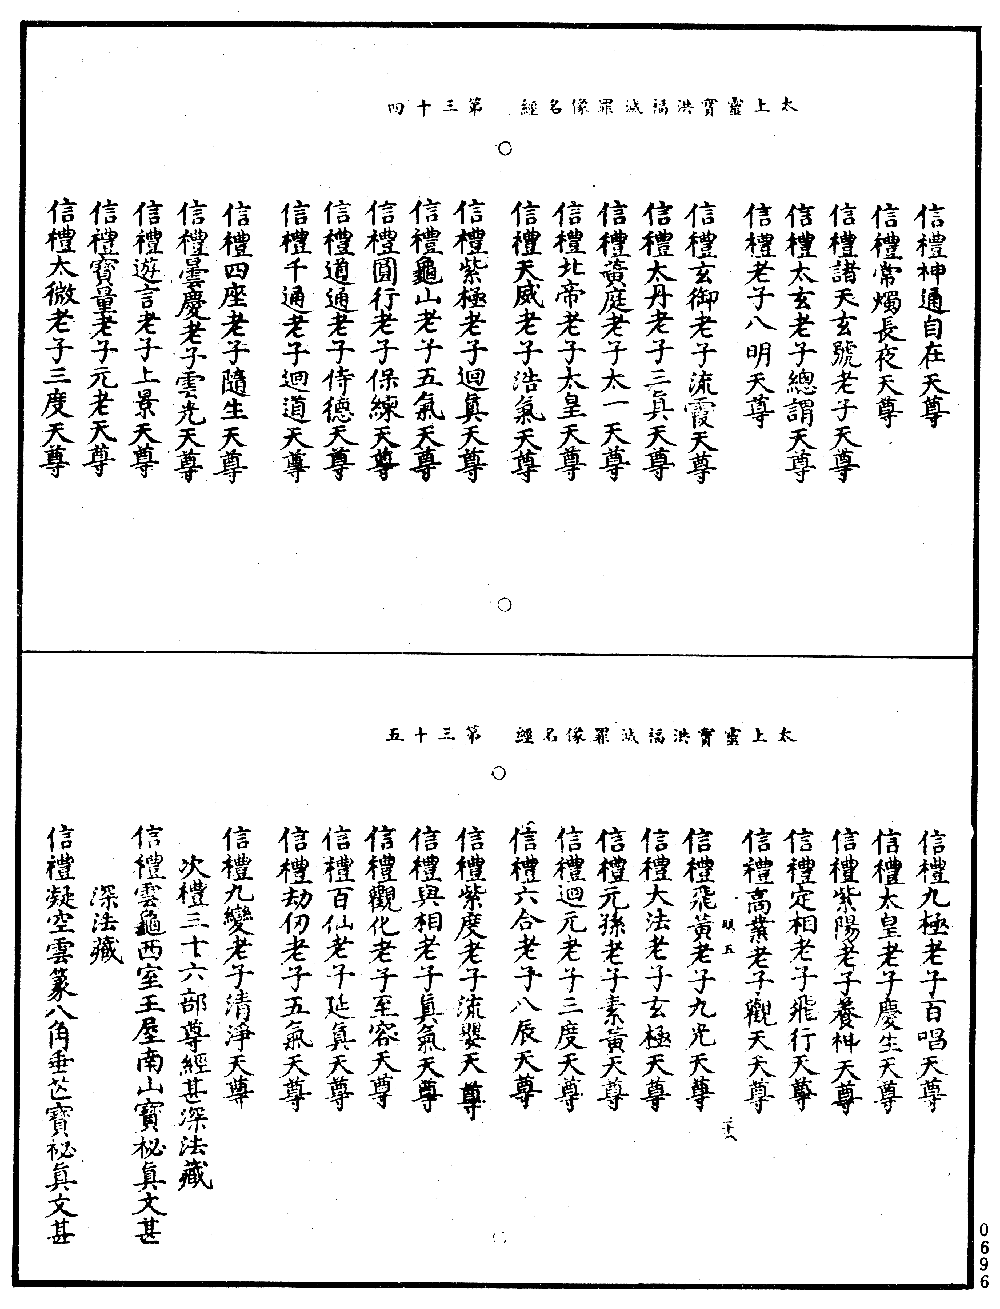 太上靈寳洪福滅罪像名經　第三十四
信禮神通自在天尊
信禮常燭長夜天尊
信禮諸天玄號老子天尊
信禮太玄老子總謂天尊
信禮老子八明天尊
信禮玄御老子流霞天尊
信禮太丹老子三真天尊
信禮黃庭老子太一天尊
信禮北帝老子太皇天尊
信禮天威老子浩氣天尊
信禮紫極老子迴真天尊
信禮龜山老子五氣天尊
信禮圓行老子保練天尊
信禮道通老子侍德天尊
信禮千通老子迴道天尊
信禮四座老子隨生天尊
信禮曇慶老子雲光天尊
信禮遊言老子上景天尊
信禮寶量老子元老天尊
信禮太微老子三度天尊
太上靈寳洪福滅罪像名經　第三十五
信禮九極老子百唱天尊
信禮太皇老子慶生天尊
信禮紫陽老子養神天尊
信禮定相老子飛行天尊
信禮高業老子觀天天尊
信禮飛黃老子九光天尊
信禮大法老子玄極天尊
信禮元孫老子素黃天尊
信禮迴元老子三度天尊
信禮六合老子八辰天尊
信禮紫度老子流嬰天尊
信禮與相老子真氣天尊
信禮觀化老子至容天尊
信禮百仙老子延真天尊
信禮劫仞老子五氣天尊
信禮九變老子清淨天尊
次禮三十六部尊經甚深法藏
信禮雲龜西室王屋南山寶祕真文甚
深法藏
信禮凝空雲篆八角垂芒寶祕真文甚
0696